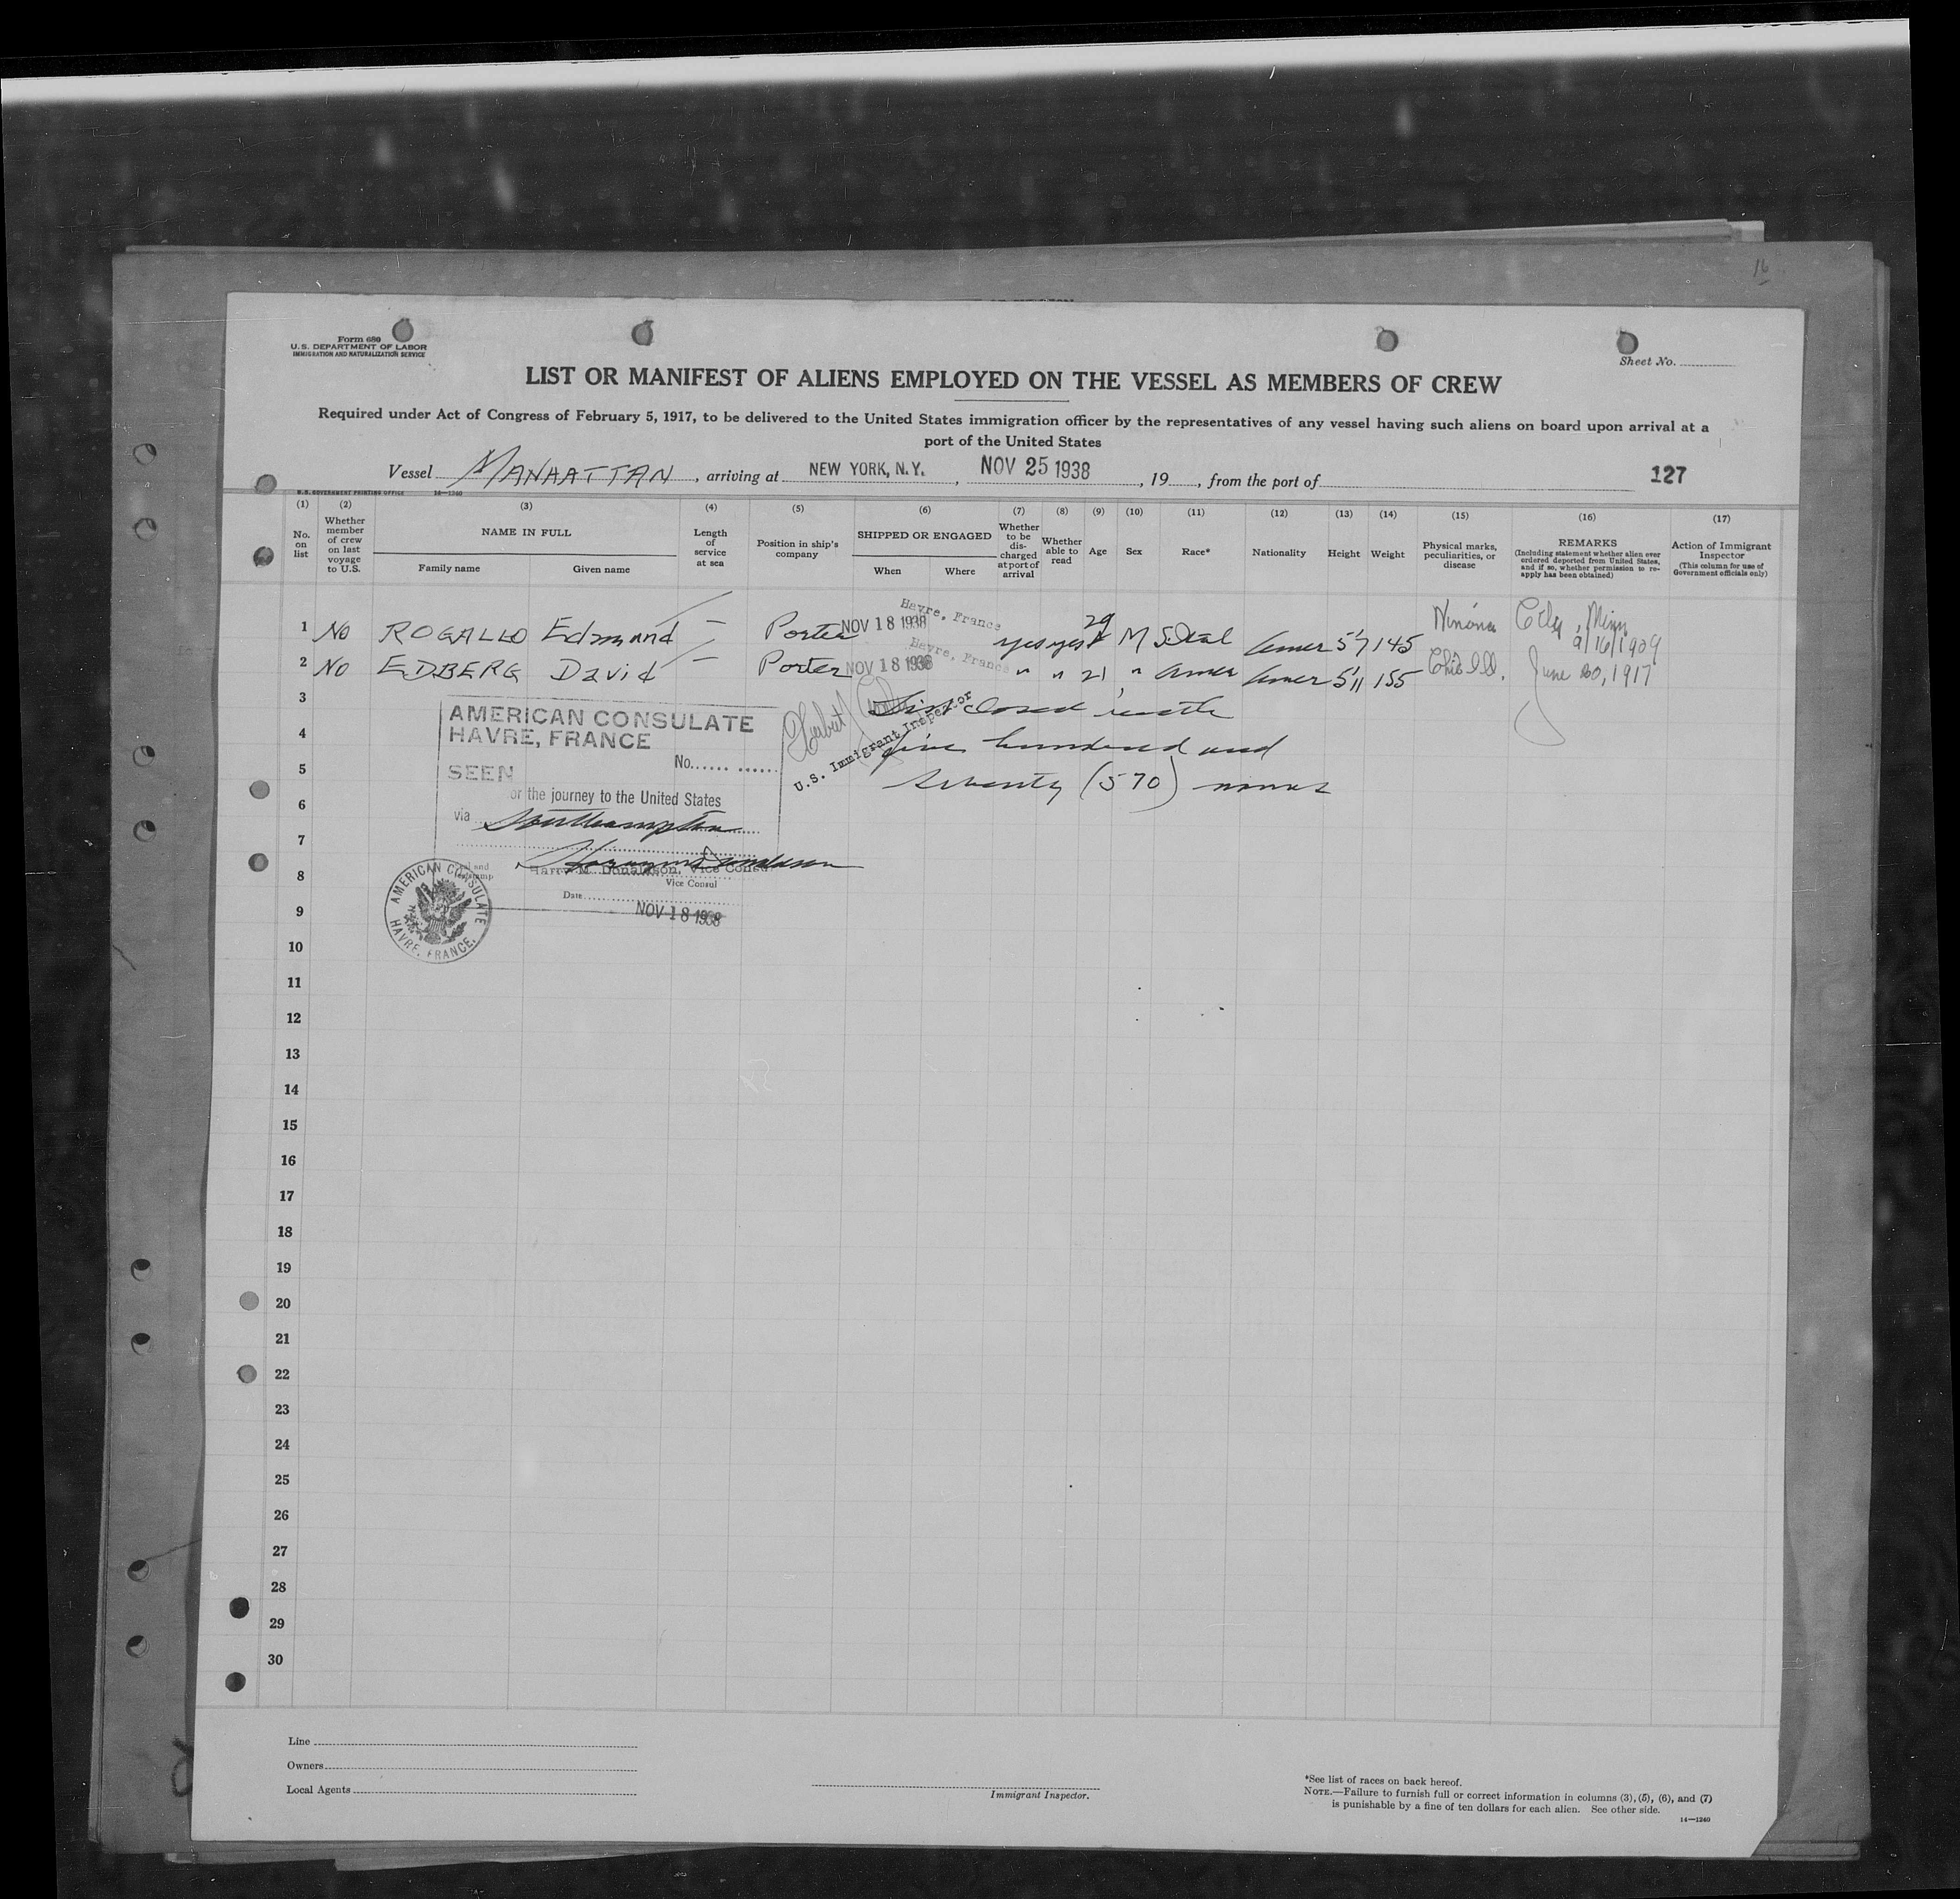 16
Form 680
U. S. DEPARTMENT OF LABOR
IMMIGRATION AND NATURALIZATION SERVICE
Sheet No.
LIST OR MANIFEST OF ALIENS EMPLOYED ON THE VESSEL AS MEMBERS OF CREW
Required under Act of Congress of February 5, 1917, to be delivered to the United States immigration officer by the representatives of any vessel having such aliens on board upon arrival at a
port of the United States
Vessel MANAATTAN, arriving at NEW YORK, N.Y., NOV 25 1938, 19, from the port of 127
U. S. GOVERNMENT PRINTING OFFICE 14—1240
(1) (2) (3) (4) (5) (6) (7) (8) (9) (10) (11) (12) (13) (14) (15) (16) (17)
No. on list
Whether member of crew on last voyage to U.S.
NAME IN FULL
Family name Given name
Length of service at sea
Position in ship's company
SHIPPED OR ENGAGED
When Where
Whether to be discharged at port of arrival
Whether able to read
Age
Sex
Race*
Nationality
Height
Weight
Physical marks, peculiarities, or disease
REMARKS
(Including statement whether alien ever ordered deported from United States, and if so, whether permission to reapply has been obtained)
Action of Immigrant Inspector
(This column for use of Government officials only)
1 No ROGALLO Edmund — Porter NOV 18 1938 Havre, France yes yes 29 M Amer 5'7 145 Winona City, Minn 9/16/1909
2 No EDBERG David — Porter NOV 18 1938 Havre, France " " 21 " Amer Amer 5'11 155 Chic Ill. June 30, 1917
3 List closed with
4 five hundred and
5 seventy (570) names
Herbert
U.S. Immigrant Inspector
AMERICAN CONSULATE
HAVRE, FRANCE
No.
SEEN
or the journey to the United States
via Southampton
Harry M. Donaldson, Vice Consul
Vice Consul
Date
NOV 18 1938
AMERICAN CONSULATE
HAVRE, FRANCE.
6
7
8
9
10
11
12
13
14
15
16
17
18
19
20
21
22
23
24
25
26
27
28
29
30
Line
Owners
Local Agents
Immigrant Inspector.
*See list of races on back hereof.
NOTE.—Failure to furnish full or correct information in columns (3), (5), (6), and (7)
is punishable by a fine of ten dollars for each alien. See other side.
14—1240